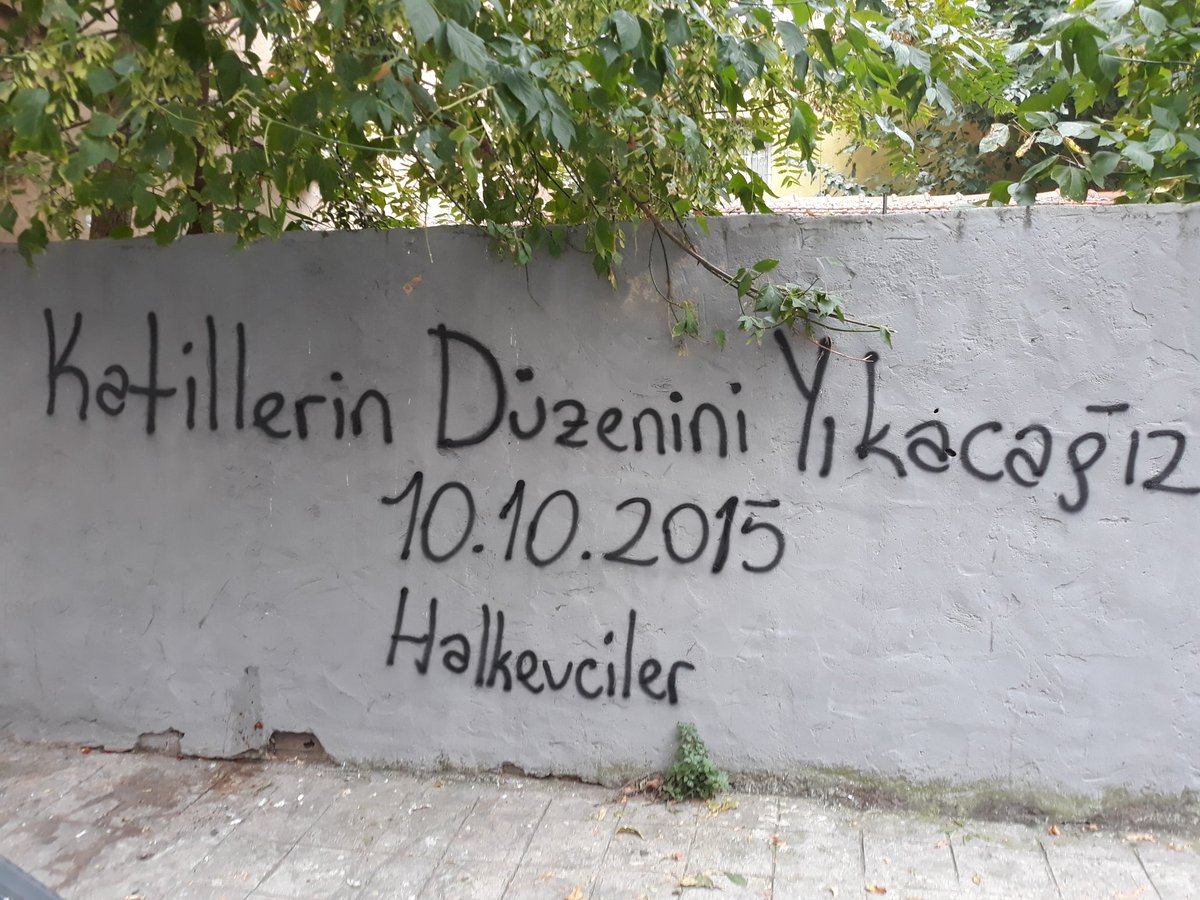 Katillerin Düzenini Yıkacağız
10.10.2015
Halkevciler